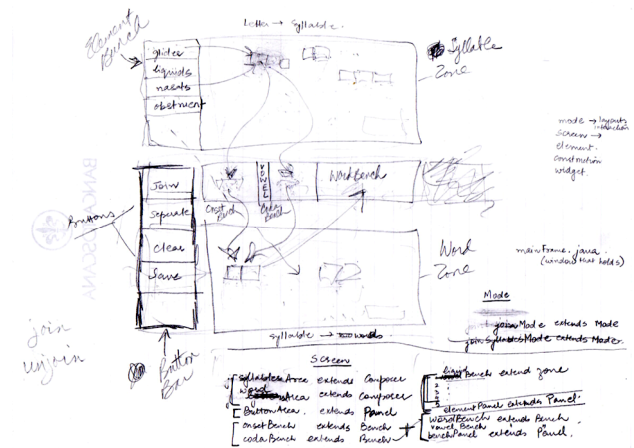 Letter → Syllable.
Element Bench
glides
liquids
nasals
obstruent
Syllable Zone
mode → layouts interaction
screen →
element.
construction
widget.
BANCA TOSCANA
Buttons
Join
Seperate
Clear
Save
Onset Bench
VOWEL
Coda Bench
WordBench
Word Zone
mainFrame.java
(window that holds)
join
unjoin
Button Bar
syllable → words
Mode
joinMode extends Mode
joinSyllablesMode extends Mode.
Screen
syllableArea extends Composer
wordArea extends Composer
ButtonArea. extends Panel
onsetBench extends Bench
codaBench extends Bench
Bench extend zone
elementPanel extends Panel.
wordBench extends Bench.
vowel Bench
benchPanel extends Panel.